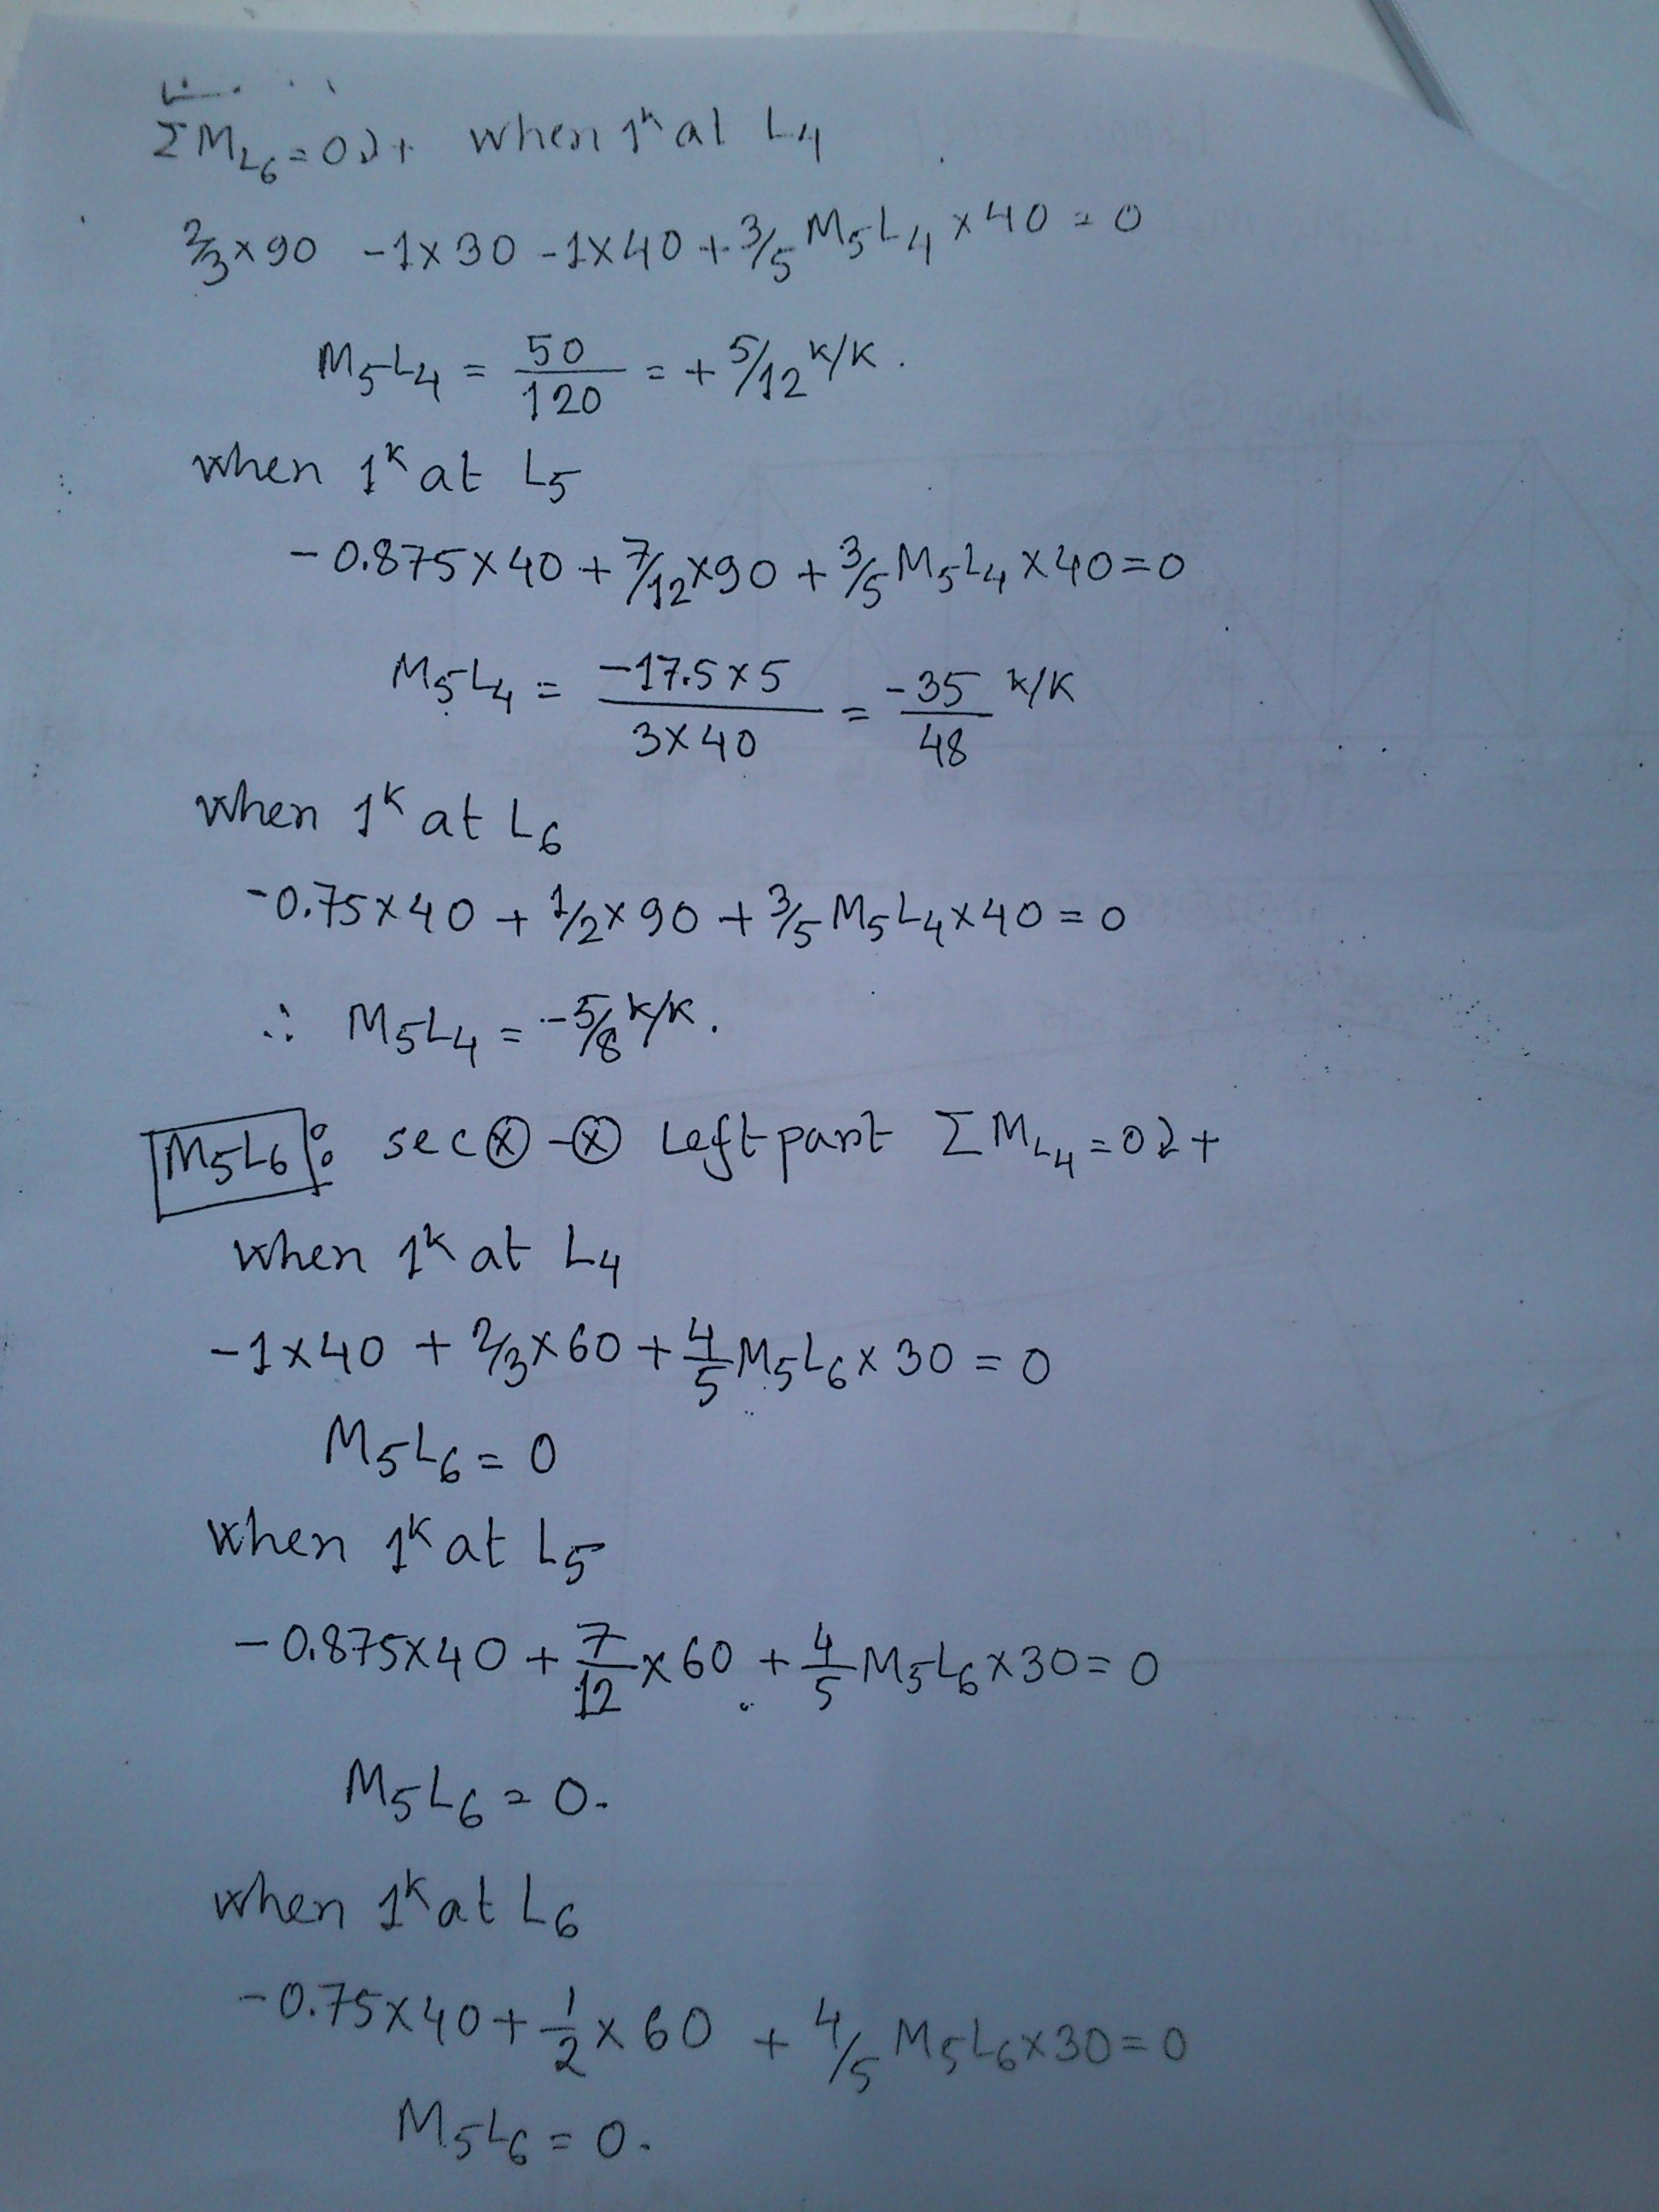 ΣM_L6 = 0 ↻+ when 1ᵏ at L4
2/3×90 -1×30 -1×40 + 3/5 M5L4 ×40 = 0
M5L4 = 50/120 = + 5/12 K/K.
when 1ᴷ at L5
-0.875×40 + 7/12×90 + 3/5 M5L4 ×40=0
M5L4 = -17.5×5/3×40 = -35/48 K/K
when 1ᴷ at L6
-0.75×40 + 1/2×90 + 3/5 M5L4×40 = 0
∴ M5L4 = -5/8 K/K.
M5L6: sec ⓧ-ⓧ Left part ΣM_L4 = 0 ↻+
when 1ᴷ at L4
-1×40 + 2/3×60 + 4/5 M5L6×30 = 0
M5L6 = 0
when 1ᴷ at L5
-0.875×40 + 7/12×60 + 4/5 M5L6×30= 0
M5L6 = 0.
when 1ᴷ at L6
-0.75×40 + 1/2×60 + 4/5 M5L6×30= 0
M5L6 = 0.